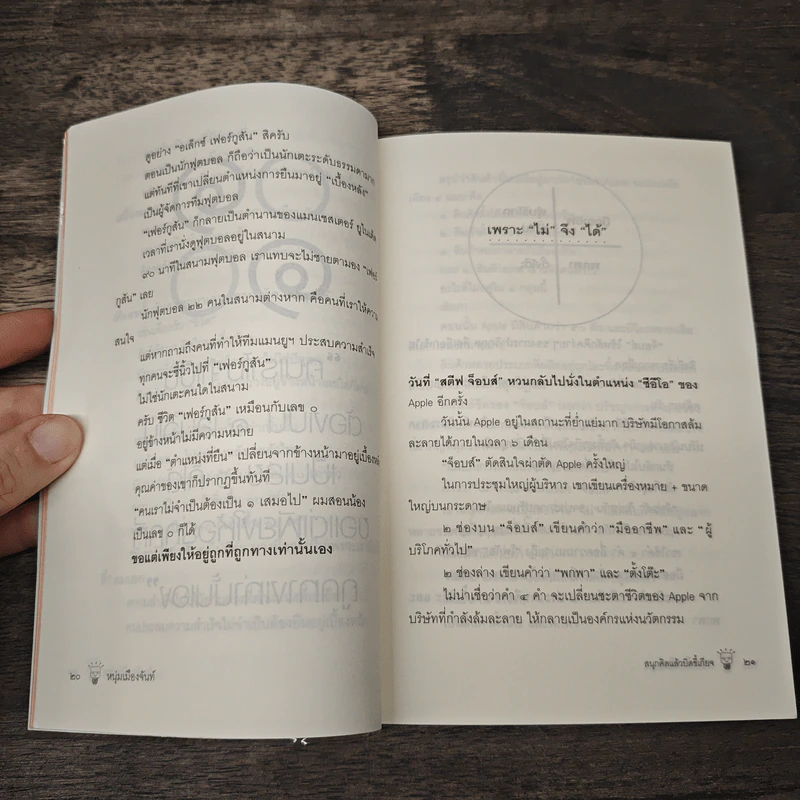 ดูอย่าง “อเล็กซ์ เฟอร์กูสัน” สิครับ
ตอนเป็นนักฟุตบอล ก็ถือว่าเป็นนักเตะระดับธรรมดามาก
แต่ทันทีที่เขาเปลี่ยนตำแหน่งการยืนมาอยู่ “เบื้องหลัง”
เป็นผู้จัดการทีมฟุตบอล
“เฟอร์กูสัน” ก็กลายเป็นตำนานของแมนเชสเตอร์ ยูไนเต็ด
เวลาที่เรานั่งดูฟุตบอลอยู่ในสนาม
๙๐ นาทีในสนามฟุตบอล เราแทบจะไม่ชายตามอง “เฟอร์
กูสัน” เลย
นักฟุตบอล ๒๒ คนในสนามต่างหาก คือคนที่เราให้ความ
สนใจ
แต่หากถามถึงคนที่ทำให้ทีมแมนยูฯ ประสบความสำเร็จ
ทุกคนจะชี้นิ้วไปที่ “เฟอร์กูสัน”
ไม่ใช่นักเตะคนใดในสนาม
ครับ ชีวิต “เฟอร์กูสัน” เหมือนกับเลข ๐
อยู่ข้างหน้าไม่มีความหมาย
แต่เมื่อ “ตำแหน่งที่ยืน” เปลี่ยนจากข้างหน้ามาอยู่เบื้องหลัง
คุณค่าของเขาก็ปรากฏขึ้นทันที
“คนเราไม่จำเป็นต้องเป็น ๑ เสมอไป” ผมสอนน้อง
เป็นเลข ๐ ก็ได้
ขอแต่เพียงให้อยู่ถูกที่ถูกทางเท่านั้นเอง
๒๐ หนุ่มเมืองจันท์
เพราะ “ไม่” จึง “ได้”
วันที่ “สตีฟ จ็อบส์” หวนกลับไปนั่งในตำแหน่ง “ซีอีโอ” ของ
Apple อีกครั้ง
วันนั้น Apple อยู่ในสถานะที่ย่ำแย่มาก บริษัทมีโอกาสล้ม
ละลายได้ภายในเวลา ๖ เดือน
“จ็อบส์” ตัดสินใจผ่าตัด Apple ครั้งใหญ่
ในการประชุมใหญ่ผู้บริหาร เขาเขียนเครื่องหมาย + ขนาด
ใหญ่บนกระดาษ
๒ ช่องบน “จ็อบส์” เขียนคำว่า “มืออาชีพ” และ “ผู้
บริโภคทั่วไป”
๒ ช่องล่าง เขียนคำว่า “พกพา” และ “ตั้งโต๊ะ”
ไม่น่าเชื่อว่าคำ ๔ คำ จะเปลี่ยนชะตาชีวิตของ Apple จาก
บริษัทที่กำลังล้มละลาย ให้กลายเป็นองค์กรแห่งนวัตกรรม
สนุกคิดแล้วบิดขี้เกียจ ๒๑